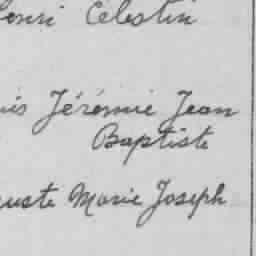 enri Celestin
uis Jérémie Jean
Baptiste
uste Marie Joseph